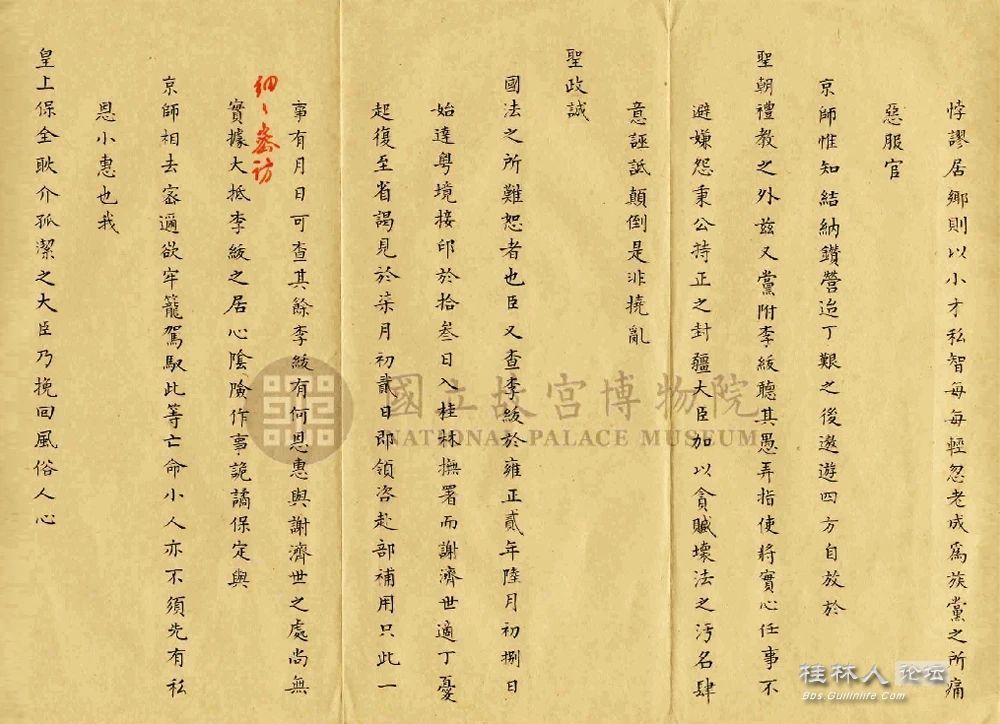 悖謬居鄉則以小才私智每每輕忽老成爲族黨之所痛
惡服官
京師惟知結納鑽營迨丁艱之後遨遊四方自放於
聖朝禮教之外茲又黨附李紱聽其愚弄指使將實心任事不
避嫌怨秉公持正之封疆大臣加以貪贓壞法之汚名肆
意誣詆顛倒是非撓亂
聖政誠
國法之所難恕者也臣又查李紱於雍正貳年陸月初捌日
始達粵境接印於拾叁日入桂林撫署而謝濟世適丁憂
起復至省謁見於柒月初貳日即領咨赴部補用只此一
事有月日可查其餘李紱有何恩惠與謝濟世之處尚無
細、密訪
實據大抵李紱之居心陰險作事詭譎保定與
京師相去密邇欲牢籠駕馭此等亡命小人亦不須先有私
恩小惠也我
皇上保全耿介孤潔之大臣乃挽回風俗人心
國立故宮博物院
NATIONAL PALACE MUSEUM
桂林人论坛
Bbs.Guilinlife.Com